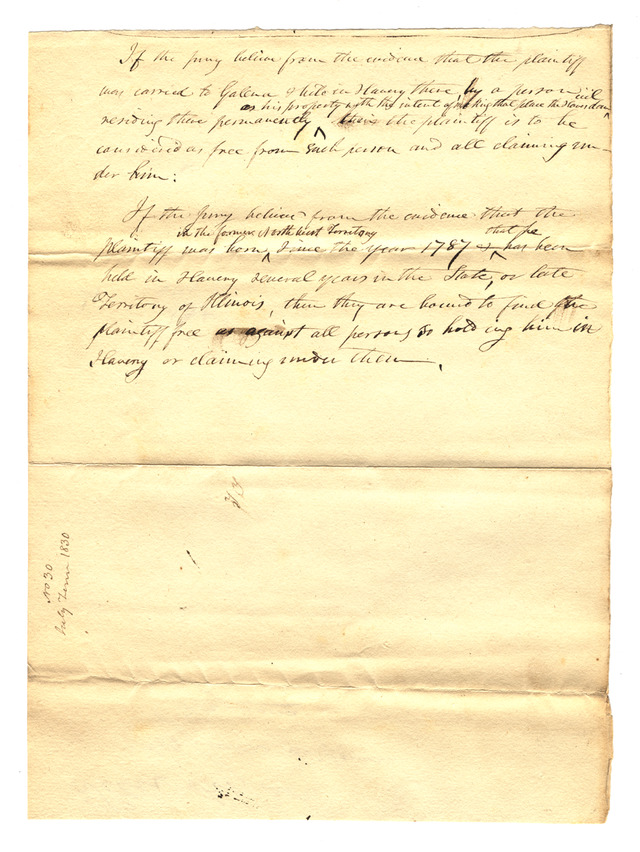 If the jury believe from the evidence that the plaintiff
was carried to Galena & held in Slavery there, by a person
as his property with the intent of making that place the
residing there permanently then the plaintiff is to be
considered as free from such person and all claiming un-
der him:
If the jury believe from the evidence that the
in the former North West Territory that he
plaintiff was born, since the year 1787 & has been
held in Slavery several years in the State, or late
Territory of Illinois, then they are bound to find the
plaintiff free as against all persons so holding him in
Slavery or claiming under them
No 30
July Term 1830